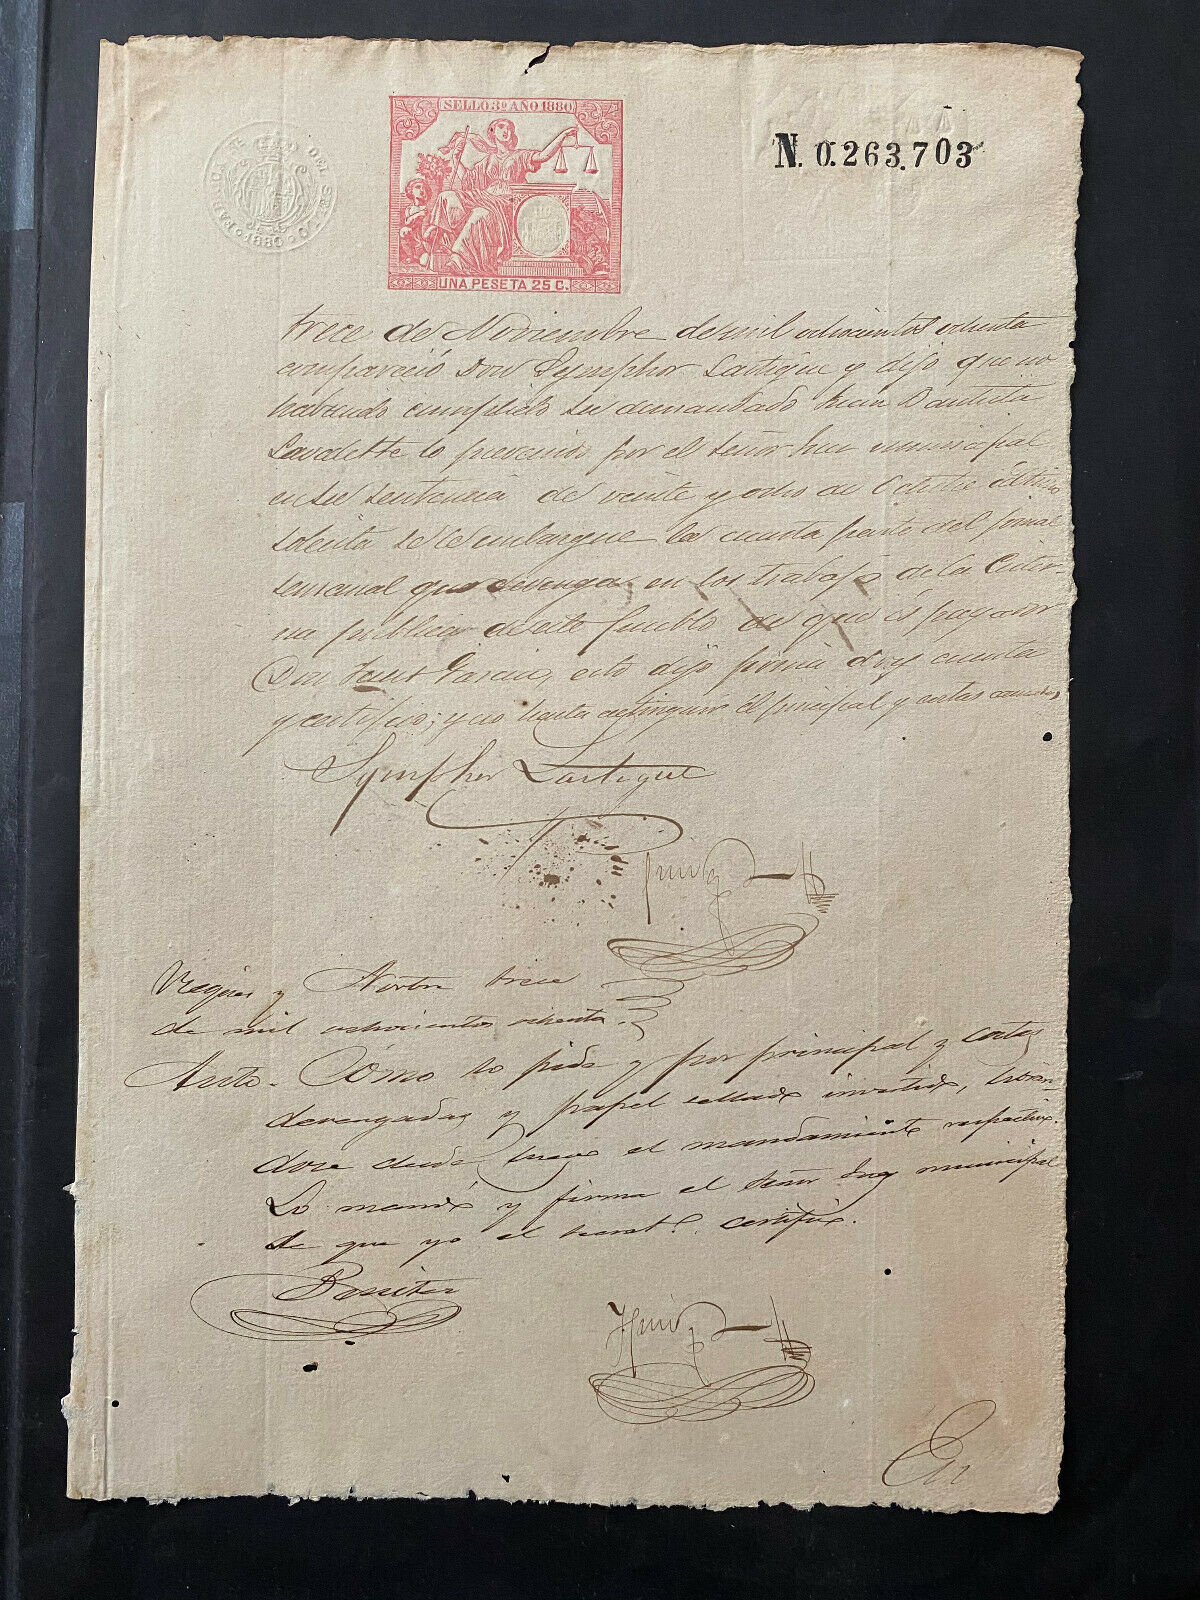 FABRICA N. DEL SELLO
1880
SELLO 3º AÑO 1880
UNA PESETA 25 C.
N. 0.263.703
trece de Noviembre de mil ochocientos ochenta
compareció Don Symphor Lartigue y dijo que no
habiendo cumplido su demandado Juan Bautista
lo prevenido por el Señor Juez municipal
en su sentencia de veinte y ocho de Octubre último
solicita se le embargue la cuarta parte del jornal
semanal que devenga en los trabajos de la Cister
na pública de este pueblo de que es pagador
Don Garcia, esto dijo firma doy cuenta
y certifico; y no hasta estinguir el principal y costas
Symphor Lartigue
y Novbre trece
de mil ochocientos ochenta.
Auto. Cómo lo pide y por principal y costas
devengadas y papel sellado invertido, libran-
dose desde luego el mandamiento respectivo.
Lo mandó y firma el Señor Juez municipal
de que yo el Secret.º certifico.
Benitez
En